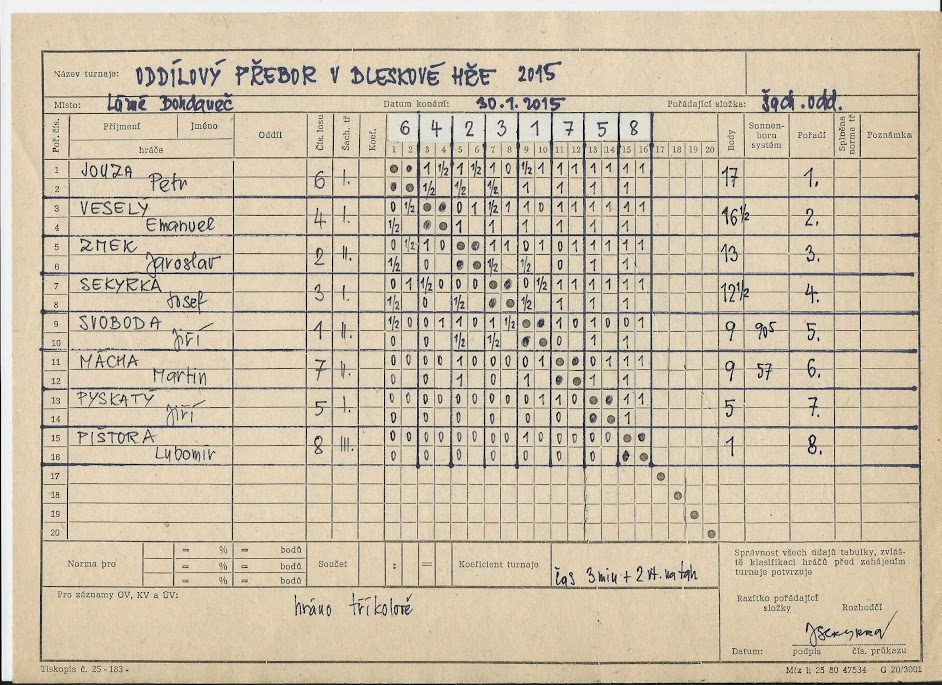 Název turnaje: ODDÍLOVÝ PŘEBOR V BLESKOVÉ HŘE 2015
Místo: Lázně Bohdaneč Datum konání: 30.1.2015 Pořádající složka: šach. odd.
Poř. čís. Příjmení Jméno hráče Oddíl Čís. losu Šach. tř. Koef. 6 4 2 3 1 7 5 8 Body Sonnenborn systém Pořadí Splněna norma tř. Poznámka
1 2 3 4 5 6 7 8 9 10 11 12 13 14 15 16 17 18 19 20
1 JOUZA 1 1/2 1 1/2 1 0 1/2 1 1 1 1 1 1 1
2 Petr 6 I. 1/2 1/2 1/2 1 1 1 1 17 1.
3 VESELÝ 0 1/2 0 1 1/2 1 1 0 1 1 1 1 1 1
4 Emanuel 4 I. 1/2 1 1 1 1 1 1 16 1/2 2.
5 ZMEK 0 1/2 1 0 1 1 0 1 0 1 1 1 1 1
6 Jaroslav 2 II. 1/2 0 1/2 1/2 0 1 1 13 3.
7 SEKYRKA 0 1 1/2 0 0 0 0 1/2 1 1 1 1 1 1
8 Josef 3 I. 1/2 0 1/2 1/2 1 1 1 12 1/2 4.
9 SVOBODA 1/2 0 0 1 1 0 1 1/2 1 0 1 0 0 1
10 Jiří 1 II. 0 0 1/2 1/2 0 1 1 9 90,5 5.
11 MÁCHA 0 0 0 0 1 0 0 0 0 1 0 1 1 1
12 Martin 7 II. 0 0 1 0 1 1 1 9 57 6.
13 PYSKATÝ 0 0 0 0 0 0 0 0 0 1 1 0 1 1
14 Jiří 5 I. 0 0 0 0 0 0 1 5 7.
15 PIŠTORA 0 0 0 0 0 0 0 0 1 0 0 0 0 0
16 Lubomír 8 III. 0 0 0 0 0 0 0 1 8.
17
18
19
20
Norma pro = % = bodů
= % = bodů
= % = bodů
Součet : = Koeficient turnaje čas 3 min + 2 vt. na tah
Správnost všech údajů tabulky, zvláště klasifikaci hráčů před zahájením turnaje potvrzuje
Pro záznamy OV, KV a ÚV:
hráno tříkolově
Razítko pořádající složky Rozhodčí
JSekyrka
Datum: podpis čís. průkazu
Tiskopis č. 25 - 183 - Mtz h 25 80 47534 G 20/3001